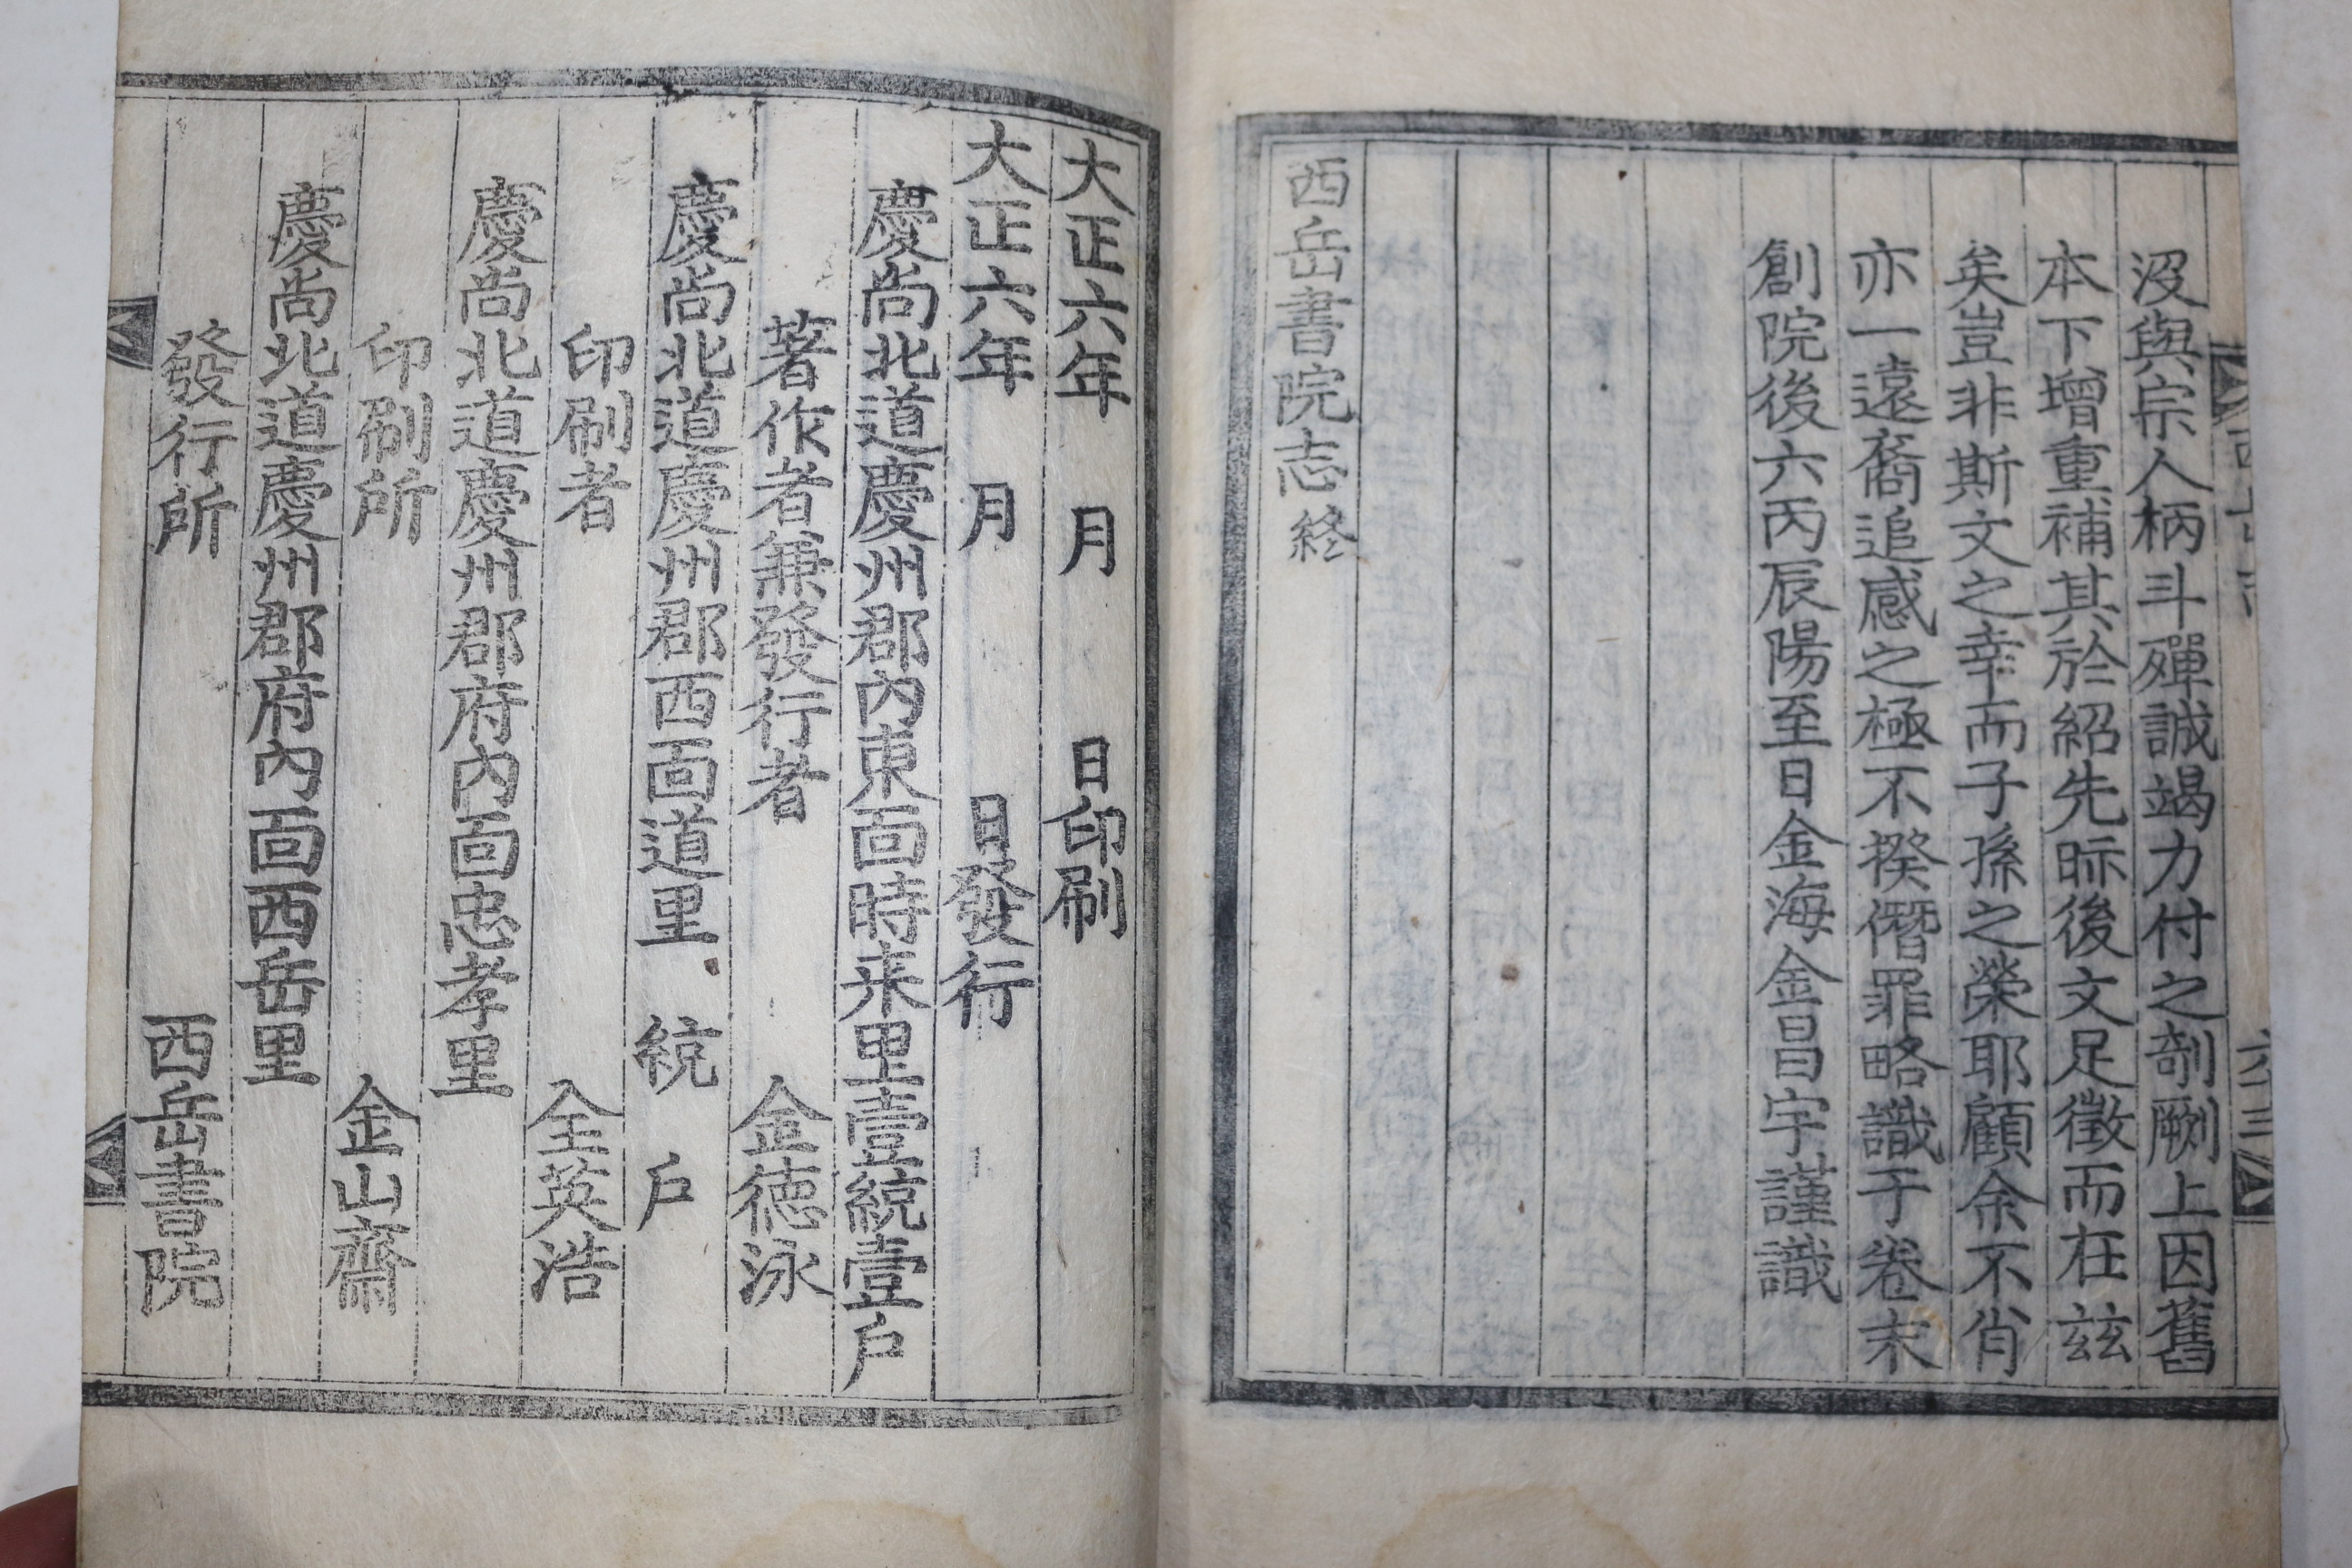 沒與宗人柄斗殫誠竭力付之剞劂上因舊
本下增重補其於紹先眎後文足徵而在玆
矣豈非斯文之幸而子孫之榮耶顧余不肖
亦一遠裔追感之極不揆僭罪略識于卷末
創院後六丙辰陽至日金海金昌宇謹識
西岳書院志終
大正六年 月 日印刷
大正六年 月 日發行
慶尚北道慶州郡內東面時来里壹統壹戶
著作者兼發行者 金德泳
慶尚北道慶州郡西面道里 統 戶
印刷者 全英浩
慶尚北道慶州郡府內面忠孝里
印刷所 金山齋
慶尚北道慶州郡府內面西岳里
發行所 西岳書院